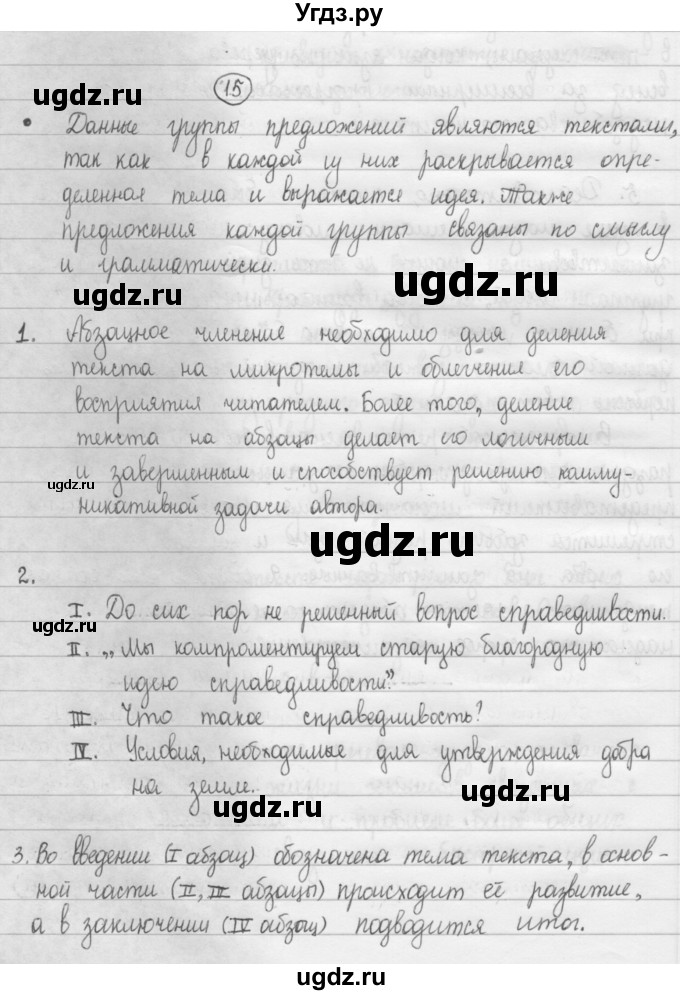 Угдз.ру
15
ugdz.ru
ugdz.ru
• Данные группы предложений являются текстами,
так как в каждой из них раскрывается опре-
деленная тема и выражается идея. Также
предложения каждой группы связаны по смыслу
и грамматически.
ugdz.ru
ugdz.ru
1. Абзацное членение необходимо для деления
текста на микротемы и облегчения его
восприятия читателем. Более того, деление
текста на абзацы делает его логичным
и завершенным и способствует решению комму-
ugdz.ru
никативной задачи автора.
ugdz.ru
2.
I. До сих пор не решенный вопрос справедливости.
ugdz.ru
II. „Мы компроментируем старую благородную
идею справедливости".
III. Что такое справедливость?
IV. Условия, необходимые для утверждения добра
на земле.
ugdz.ru
ugdz.ru
3. Во введении (I абзац) обозначена тема текста, в основ-
ной части (II, III абзацы) происходит её развитие,
а в заключении (IV абзац) подводится итог.
ugdz.ru
ugdz.ru